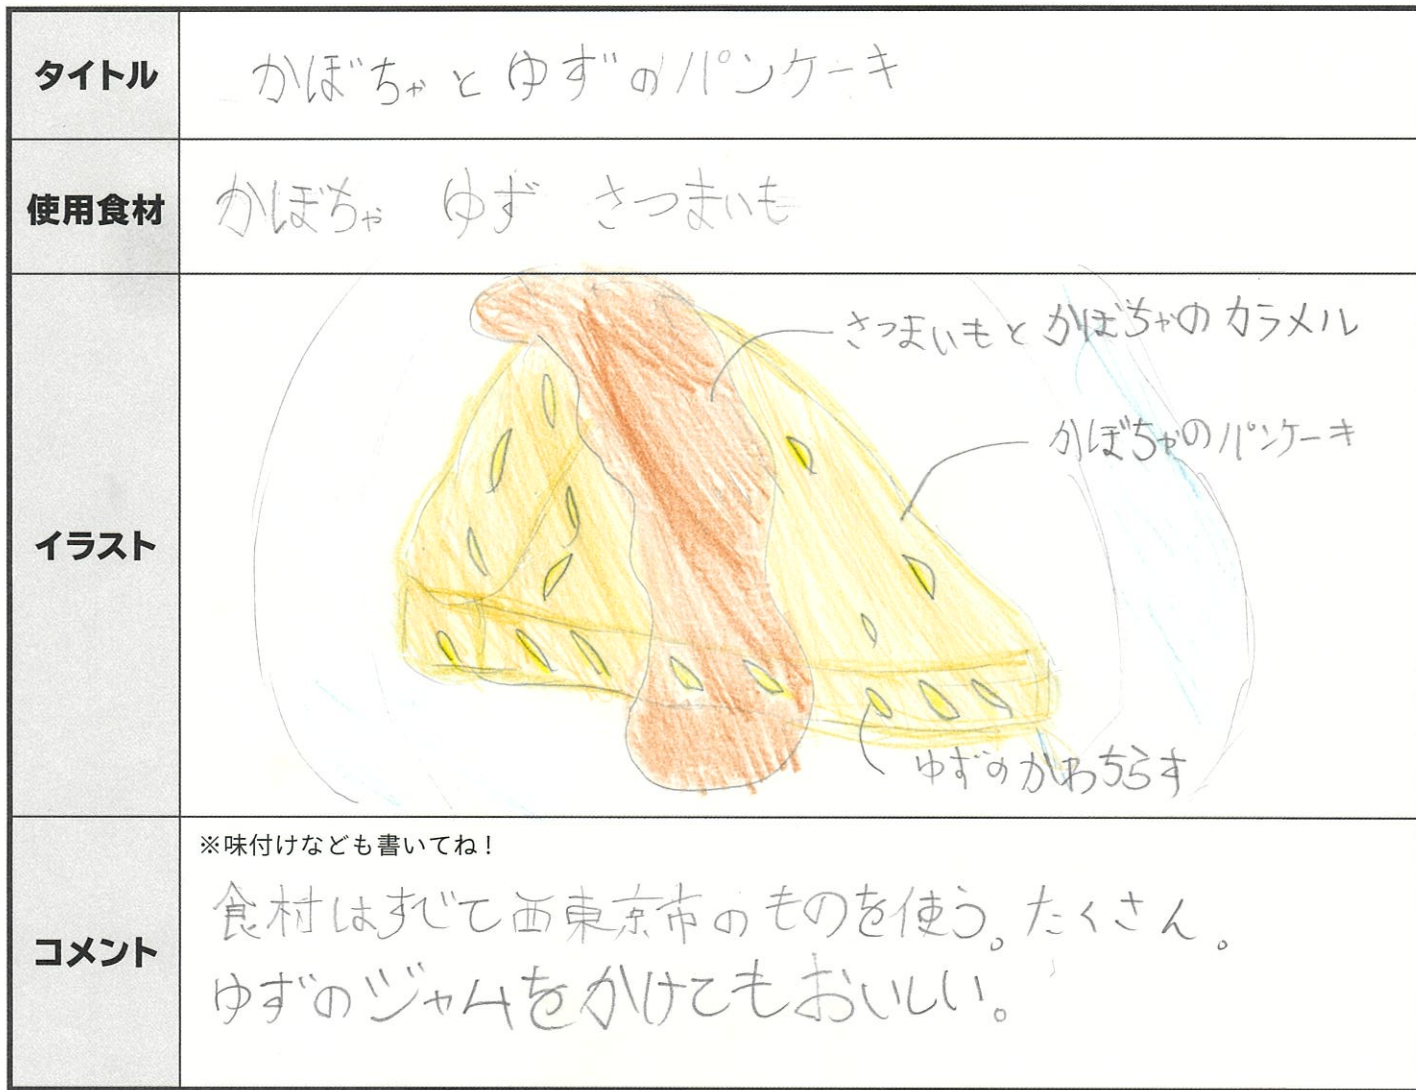 タイトル
かぼちゃとゆずのパンケーキ
使用食材
かぼちゃ ゆず さつまいも
イラスト
さつまいもとかぼちゃのカラメル
かぼちゃのパンケーキ
ゆずのかわちらす
コメント
※味付けなども書いてね!
食村はすべて西東京市のものを使う。たくさん。
ゆずのジャムをかけてもおいしい。